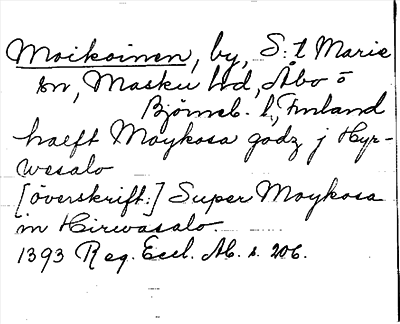 Moikoinen, by, S:t Marie
sn, Masku hd, Åbo o
Björneb. l., Finland
haeft Moykosa godz j Hyr-
wesalo
[överskrift:] Super Moykosa
in Hirwasalo.
1393 Reg. Eccl. Ab. s. 206.